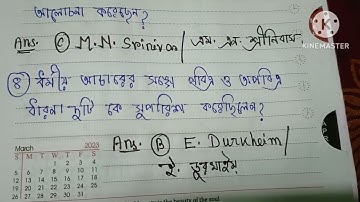 আলোচনা করেছেন?
Ans. ⓒ M. N. Srinivas / এম. এন. শ্রীনিবাস
KINEMASTER
⑧ ধর্মীয় আচারের সঙ্গে পবিত্র ও অপবিত্র
ধারনা দুটি কে সুপারিশ করেছিলেন?
Ans. Ⓑ E. Durkheim /
ই. ডুরখাইম
March 2023
S M T W T F S
1 2 3 4
5 6 7 8 9 10 11
12 13 14 15 16 17 18
19 20 21 22 23 24 25
26
the beauty of the soul